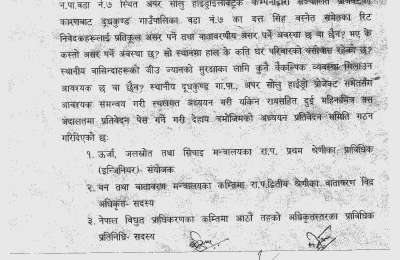 न.पा.वडा नं.७ स्थित अपर सोलु हाईड्रोइलेक्ट्रिक कम्पनीद्वारा सञ्चालित
कारणबाट दूधकुण्ड गाउँपालिका वडा नं.७ का दत्त सिंह बस्नेत समेतका रिट
निवेदकहरूलाई प्रतिकूल असर पर्ने तथा वातावरणीय असर पर्ने अवस्था छ वा छैन? भए के
कस्तो असर पर्ने अवस्था छ? सो स्थानमा हाल के कति घर परिवारको बसोबास रहेको छ?
स्थानीय बासिन्दाहरूको जीउ ज्यानको सुरक्षाका लागि कुनै वैकल्पिक व्यवस्था मिलाउन
आवश्यक छ वा छैन? स्थानीय दूधकुण्ड गा.पा., अपर सोलु हाईड्रो प्रोजेक्ट समेतसँग
आवश्यक समन्वय गरी स्थलगत अध्ययन गरी यकिन रायसहित दुई महिनाभित्र यस
अदालतमा प्रतिवेदन पेस गर्ने गरी देहाय बमोजिमको अध्ययन प्रतिवेदन समिति गठन
गरिदिएको छः
१. ऊर्जा, जलस्रोत तथा सिंचाइ मन्त्रालयका रा.प. प्रथम श्रेणीका प्राविधिक
(इन्जिनियर)- संयोजक
२. वन तथा वातावरण मन्त्रालयका कम्तिमा रा.प.द्वितीय श्रेणीका वातावरण विद
अधिकृत- सदस्य
३. नेपाल विद्युत प्राधिकरणका कम्तिमा आठौं तहको अधिकृतस्तरका प्राविधिक
प्रतिनिधि- सदस्य